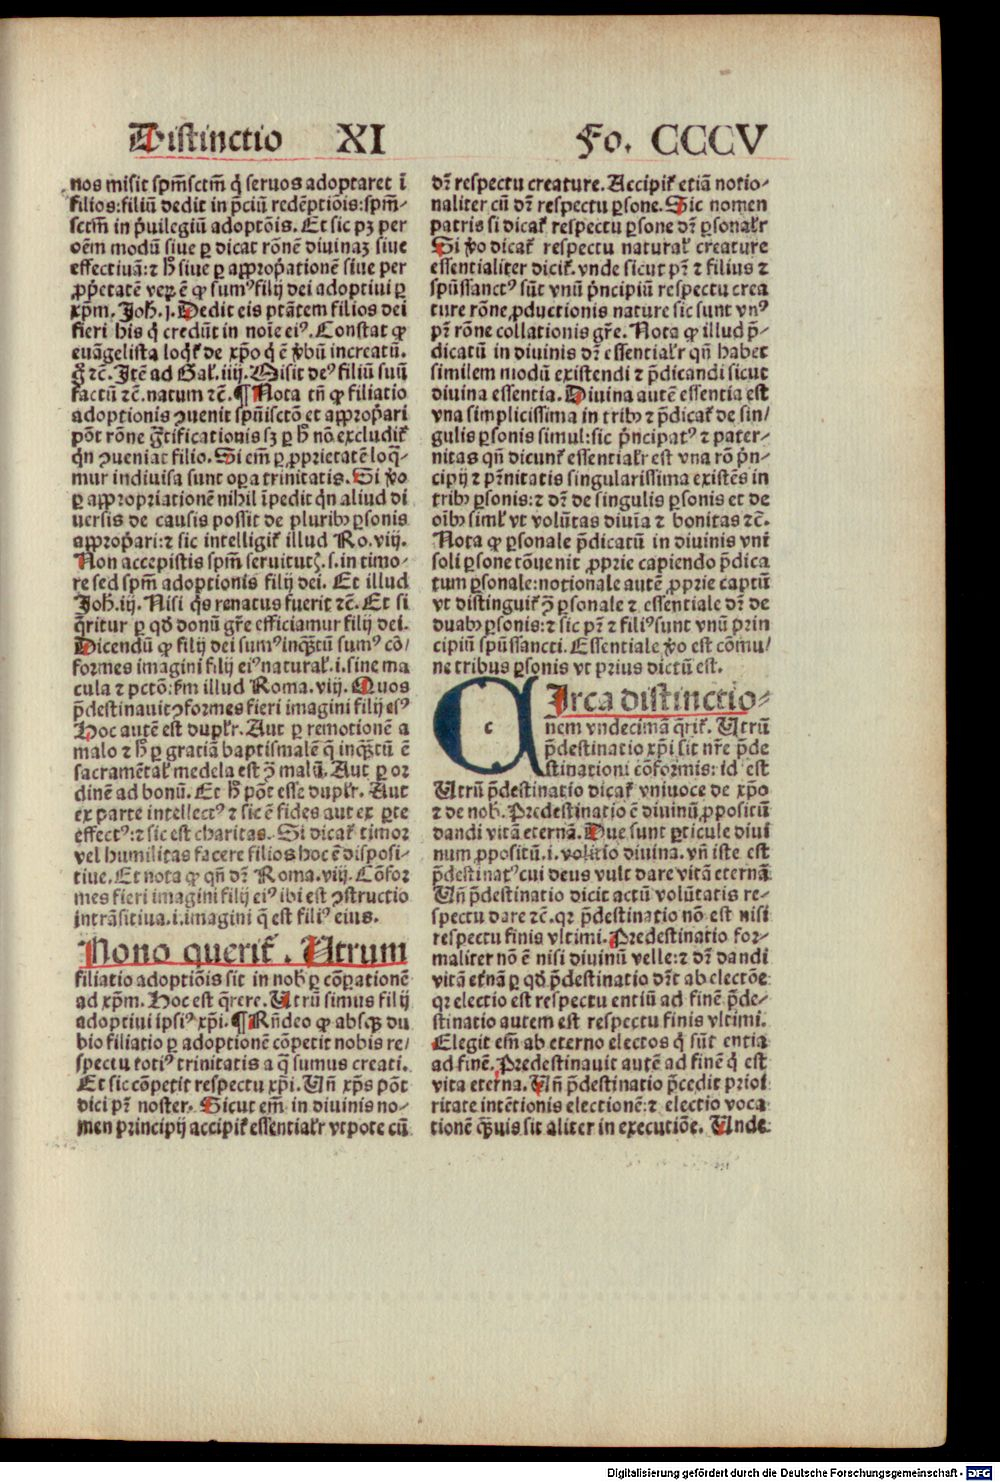 Distinctio XI Fo. CCCV
nos misit spm̄sctm̄ q̇ seruos adoptaret ī
filios:filiū dedit in p̄ciū redēptiōis:spm̄-
sctm̄ in p̓uilegiū adoptōis. Et sic pꝫ per
oēm modū siue ꝑ dicat rōnē diuinaꝫ siue
effectiuā:⁊ ħ siue ꝑ appropͥationē siue per
ꝓpͥetatē veꝝ ē ꝙ sumꝰ filij dei adoptiui ꝑ
xp̄m. Joħ.j. Dedit eis ptātem filios dei
fieri his q̇ credūt in noie eiꝰ. Constat ꝙ
euāgelista loqͥt̉ de xp̄o q̇ ē v̓bū increatū.
g̊ ⁊c̄. Itē ad Gaƚ.iiij. Misit deꝰ filiū suū
factū ⁊c̄.natum ⁊c̄.¶ Nota tn̄ ꝙ filiatio
adoptionis ꝯuenit spūisctō et appropͥari
pōt rōne gͣtificationis sꝫ ꝑ ħ nō excludit̉
qͥn ꝯueniat filio. Si em̄ ꝑ ꝓprietatē loq̄-
mur indiuisa sunt oꝑa trinitatis. Si v̓o
ꝑ appropriationē nihil īpedit qͥn aliud di
uersis de causis possit de pluribꝰ ꝑsonis
appropͥari:⁊ sic intelligit̉ illud Ro.viij.
Non accepistis spm̄ seruitutꝭ.s.in timo-
re sed spm̄ adoptionis filij dei. Et illud
Joħ.iij. Nisi qͥs renatus fuerit ⁊c̄. Et si
q̄ritur ꝑ qd̓ donū gr̄e efficiamur filij dei.
Dicendū ꝙ filij dei sumꝰ inqͣꝫtū sumꝰ cō/
formes imagini filij eiꝰ naturaƚ.i.sine ma
cula ⁊ pctō:ẜm illud Roma.viij. Quos
p̄destinauit ꝯformes fieri imagini filij eiꝰ
Hoc autē est dupƚr. Aut ꝑ remotionē a
malo ⁊ ħ ꝑ gratiā baptismalē q̄ inqͣꝫtū ē
sacramētaƚ medela est ꝯ̄ malū. Aut ꝑ or
dinē ad bonū. Et ħ pōt esse dupƚr. Aut
ex parte intellectꝰ ⁊ sic ē fides aut ex ꝑte
effectꝰ:⁊ sic est charitas. Si dicat̉ timor
vel humilitas facere filios hoc ē disposi-
tiue. Et nota ꝙ qn̄ dr̄ Roma.viij. Cōfor
mes fieri imagini filij eiꝰ ibi est ꝯstructio
intrāsitiua.i.imagini q̄ est filiꝰ eius.
Nono querit̉. Utrum
filiatio adoptiōis sit in nob̓ ꝑ cōꝑationē
ad xp̄m. Hoc est q̄rere. Utrū simus filij
adoptiui ipsiꝰ xp̄i.¶ Rn̄deo ꝙ absqꝫ du
bio filiatio ꝑ adoptionē cōpetit nobis re/
spectu totiꝰ trinitatis a q̄ sumus creati.
Et sic cōpetit respectu xp̄i. Un̄ xp̄s pōt
dici pr̄ noster. Sicut em̄ in diuinis no-
men principij accipit̉ essentialr̓ vtpote cū
dr̄ respectu creature. Accipit̉ etiā notio-
naliter cū dr̄ respectu ꝑsone. Sic nomen
patris si dicat̉ respectu ꝑsone dr̄ ꝑsonalr̓
Si v̓o dicat̉ respectu naturaƚ creature
essentialiter dicit̉. vnde sicut pr̄ ⁊ filius ⁊
spūssanctꝰ sūt vnū pͥncipiū respectu crea
ture rōne ꝓductionis nature sic sunt vnꝰ
pr̄ rōne collationis gr̄e. Nota ꝙ illud p̄-
dicatū in diuinis dr̄ essentialr̓ qn̄ habet
similem modū existendi ⁊ p̄dicandi sicut
diuina essentia. Diuina autē essentia est
vna simplicissima in tribꝰ ⁊ p̄dicat̉ de sin/
gulis ꝑsonis simul:sic pͥncipatꝰ ⁊ pater-
nitas qn̄ dicunt̉ essentialr̓ est vna rō pͥn-
cipij ⁊ pr̄nitatis singularissima existēs in
tribꝰ ꝑsonis:⁊ dr̄ de singulis ꝑsonis et de
oībꝰ simƚ vt volūtas diuīa ⁊ bonitas ⁊c̄.
Nota ꝙ ꝑsonale p̄dicatū in diuinis vni
soli ꝑsone cōuenit ꝓprie capiendo p̄dica
tum ꝑsonale:notionale autē ꝓprie captū
vt distinguit̉ ꝯ̄ ꝑsonale ⁊ essentiale dr̄ de
duabꝰ ꝑsonis:⁊ sic pr̄ ⁊ filiꝰ sunt vnū prin
cipiū spūssancti. Essentiale v̓o est cōmu/
ne tribus ꝑsonis vt prius dictū est.
CIrca distinctio-
nem vndecimā q̄rit̉. Utrū
p̄destinatio xp̄i sit nr̄e p̄de
stinationi cōformis:id est
Utrū p̄destinatio dicat̉ vniuoce de xp̄o
⁊ de nob̓. Predestinatio ē diuinū ꝓpositū
dandi vitā eternā. Due sunt ꝑticule diui
num ꝓpositū.i.volitio diuina.vn̄ iste est
p̄destinatꝰ cui deus vult dare vitā eternā
Un̄ p̄destinatio dicit actū volūtatis re-
spectu dare ⁊c̄.qꝛ p̄destinatio nō est nisi
respectu finis vltimi. Predestinatio for-
maliter nō ē nisi diuinū velle:⁊ dr̄ dandi
vitā et̓nā ꝑ qd̓ p̄destinatio dr̄t ab electōe
qꝛ electio est respectu entiū ad finē p̄de-
stinatio autem est respectu finis vltimi.
Elegit em̄ ab eterno electos q̇ sūt entia
ad finē. Predestinauit autē ad finē q̇ est
vita eterna. Un̄ p̄destinatio p̄cedit priori
ritate intētionis electionē:⁊ electio voca
tionē qͣꝫuis sit aliter in executiōe. Unde
Digitalisierung gefördert durch die Deutsche Forschungsgemeinschaft - DFG